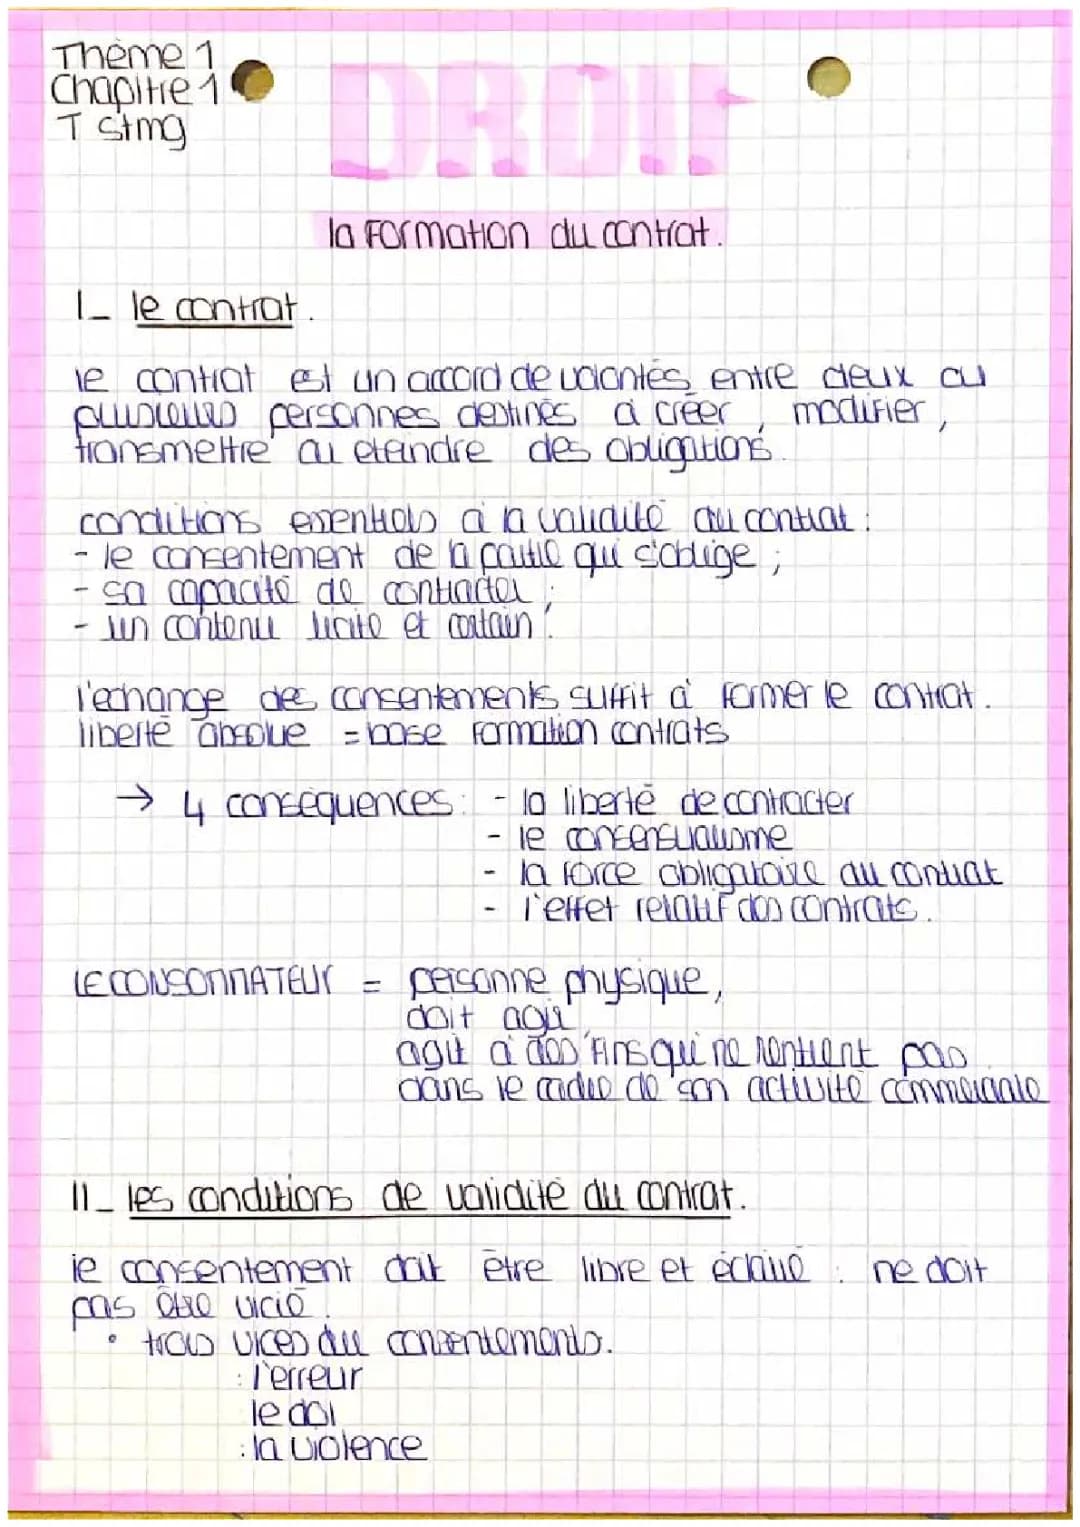 Thème 1
Chapitre 1
T stmg
DROIT
la formation du contrat.
I_ le contrat.
le contrat est un accord de volontés entre deux ou
plusieurs personnes destinés à créer, modifier,
transmettre ou eteindre des obligations.
conditions essentiels à la validité du contrat :
- le consentement de la partie qui s'oblige ;
- sa capacité de contracter ;
- un contenu licite et certain.
l'echange des consentements suffit à former le contrat.
liberté absolue = base formation contrats
→ 4 conséquences: - la liberté de contracter
- le consensualisme
- la force obligatoire du contrat
- l'effet relatif des contrats.
LE CONSOMMATEUR = personne physique,
doit agir
agit à des fins qui ne rentrent pas
dans le cadre de son activité commerciale
II_ les conditions de validité du contrat.
le consentement doit être libre et éclairé : ne doit
pas être vicié.
• trois vices du consentements.
: l'erreur
le dol
: la violence